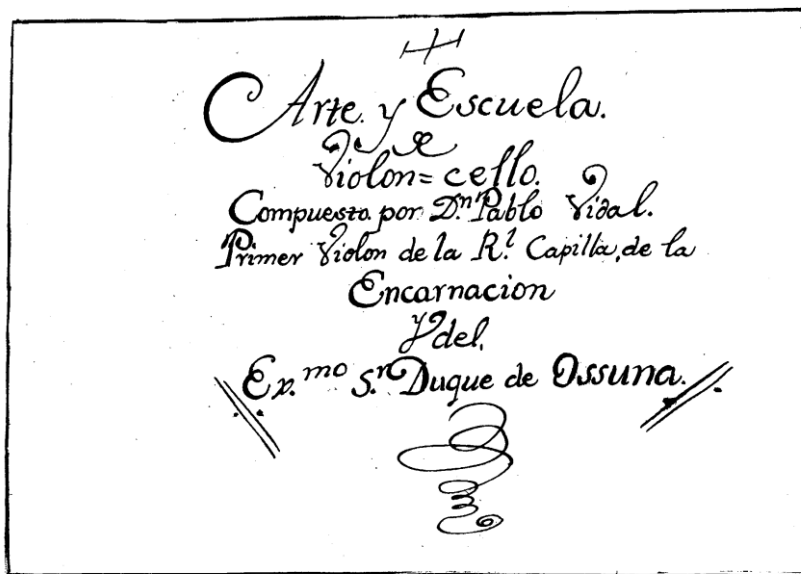 Arte y Escuela.
de
Violon=cello.
Compuesto por D.n Pablo Vidal.
Primer Violon de la R.l Capilla, de la
Encarnacion
y del,
Ex.mo S.r Duque de Ossuna.